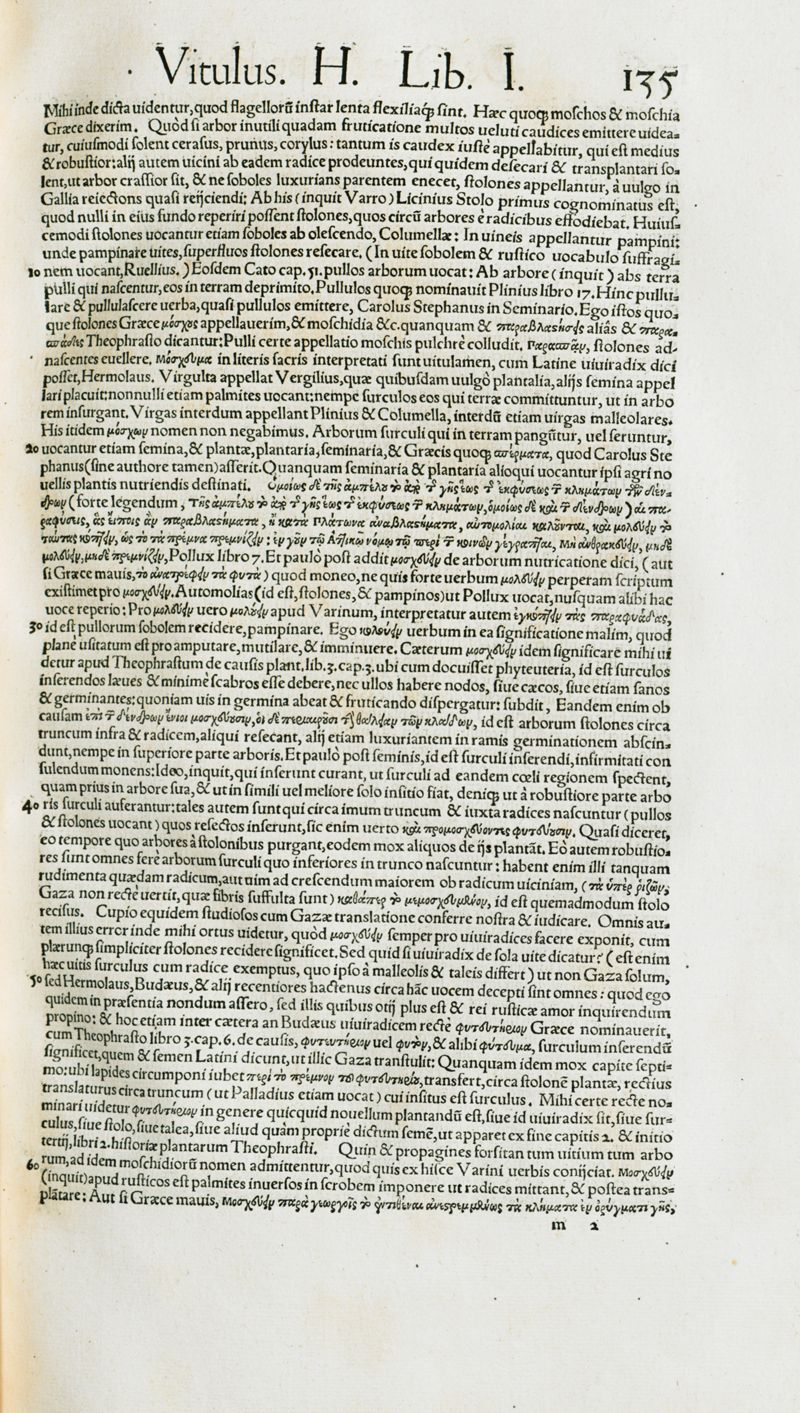 Vitulus. H. Lib. I. 135
Mihi inde dicta uidentur, quod flagellorū instar lenta flexiliaq; sint. Hæc quoq; moschos & moschia
Græce dixerim. Quòd si arbor inutili quadam fruticatione multos ueluti caudices emittere uidea=
tur, cuiusmodi solent cerasus, prunus, corylus: tantum is caudex iustè appellabitur, qui est medius
& robustior: alij autem uicini ab eadem radice prodeuntes, qui quidem desecari & transplantari so=
lent, ut arbor crassior sit, & ne soboles luxurians parentem enecet, stolones appellantur, à uulgo in
Gallia reiectons quasi reijciendi; Ab his (inquit Varro) Licinius Stolo primus cognominatus est,
quod nulli in eius fundo reperiri possent stolones, quos circū arbores è radicibus effodiebat. Huius=
cemodi stolones uocantur etiam soboles ab olescendo, Columellæ: In uineis appellantur pampini:
unde pampinare uites, superfluos stolones resecare. (In uite sobolem & rustico uocabulo suffragi=
10 nem uocant, Ruellius.) Eosdem Cato cap. 51. pullos arborum uocat: Ab arbore (inquit) abs terra
pulli qui nascentur, eos in terram deprimito. Pullulos quoq; nominauit Plinius libro 17. Hinc pullu=
lare & pullulascere uerba, quasi pullulos emittere, Carolus Stephanus in Seminario. Ego istos quo=
que stolones Græce μόσχους appellauerim, & moschidia &c. quanquam & παραβλαστήσεις aliâs & παρα=
σπάδες Theophrasto dicantur: Pulli certe appellatio moschis pulchrè colludit. Παρασπᾷν, stolones ad=
nascentes euellere. Μόσχευμα in literis sacris interpretati sunt uitulamen, cum Latine uiuiradix dici
posset, Hermolaus. Virgulta appellat Vergilius, quæ quibusdam uulgò plantalia, alijs semina appel
lari placuit: nonnulli etiam palmites uocant: nempe surculos eos qui terræ committuntur, ut in arbo
rem insurgant. Virgas interdum appellant Plinius & Columella, interdū etiam uirgas malleolares.
His itidem μόσχων nomen non negabimus. Arborum surculi qui in terram pangūtur, uel seruntur,
20 uocantur etiam semina, & plantæ, plantaria, seminaria, & Græcis quoq; σπέρματα, quod Carolus Ste
phanus (sine authore tamen) asserit. Quanquam seminaria & plantaria alioqui uocantur ipsi agri no
uellis plantis nutriendis destinati. Ὁμοίως δὲ τῆς ἀμπέλου τὸ ἀπὸ τ῀ γῆς ἕως τ῀ ἐκφύσεως τ῀ κλημάτων τῶν δέν=
δρων (forte legendum, Τῆς ἀμπέλου τὸ ἀπὸ τ῀ γῆς ἕως τ῀ ἐκφύσεως τ῀ κλημάτων, ὁμοίως δὲ καὶ τ῀ δένδρων) αἱ πα=
ραφύσεις, ἃς εἴποις ἂν παραβλαστήματα, ἢ κατὰ Πλάτωνα ἀναβλαστήματα, αὐτομολίαι καλοῦνται, καὶ μολεύειν τὸ
ταύτας κόπτειν, ὡς τὸ τὰ πρέμνα πρεμνίζειν: ἐν γοῦν τῷ Ἀττικῷ νόμῳ τῷ περὶ τ῀ κοινῶν γέγραπται, Μὴ ἀνθρακεύειν, μηδὲ
μολεύειν, μηδὲ πρεμνίζειν, Pollux libro 7. Et paulò post addit μοσχεύειν de arborum nutricatione dici, (aut
si Græce mauis, τὸ ἀνατρέφειν τὰ φυτὰ) quod moneo, ne quis forte uerbum μολεύειν perperam scriptum
existimet pro μοσχεύειν. Automolias (id est, stolones, & pampinos) ut Pollux uocat, nusquam alibi hac
uoce reperio: Pro μολεύειν uero μολούειν apud Varinum, interpretatur autem ἐγκόπτειν τὰς παραφυάδας,
30 id est pullorum sobolem recidere, pampinare. Ego κολούειν uerbum in ea significatione malim, quod
planè usitatum est pro amputare, mutilare, & imminuere. Cæterum μοσχεύειν idem significare mihi ui
detur apud Theophrastum de causis plant. lib. 3. cap. 3. ubi cum docuisset phyteuteria, id est surculos
inserendos læues & minimè scabros esse debere, nec ullos habere nodos, siue cæcos, siue etiam sanos
& germinantes: quoniam uis in germina abeat & fruticando dispergatur: subdit, Eandem enim ob
causam ἐπὶ τ῀ δένδρων ἔνιοι μοσχεύουσιν, οἱ δὲ περικαιροῦσι τ῀ βαλλειν τῶν κλάδων, id est arborum stolones circa
truncum infra & radicem, aliqui resecant, alij etiam luxuriantem in ramis germinationem abscin=
dunt, nempe in superiore parte arboris. Et paulò post seminis, id est surculi inserendi, infirmitati con
sulendum monens: Ideo, inquit, qui inserunt curant, ut surculi ad eandem cœli regionem spectent,
quam prius in arbore sua, & ut in simili uel meliore solo insitio fiat, deniq; ut à robustiore parte arbo
40 ris surculi auferantur: tales autem sunt qui circa imum truncum & iuxta radices nascuntur (pullos
& stolones uocant) quos resectos inserunt, sic enim uerto καὶ προμοσχεύοντες φυτεύουσιν. Quasi diceret,
eo tempore quo arbores à stolonibus purgant, eodem mox aliquos de ijs plantāt. Eò autem robustio=
res sunt omnes ferè arborum surculi quo inferiores in trunco nascuntur: habent enim illi tanquam
rudimenta quædam radicum, aut uim ad crescendum maiorem ob radicum uiciniam, (τὰ ὑπὲρ ῥιζῶν,
Gaza non rectè uertit, quæ fibris suffulta sunt) καθάπερ τὸ μεμοσχευμένον, id est quemadmodum stolo
recisus. Cupio equidem studiosos cum Gazæ translatione conferre nostra & iudicare. Omnis au=
tem illius error inde mihi ortus uidetur, quòd μοσχεύειν semper pro uiuiradices facere exponit, cum
plærunq; simpliciter stolones recidere significet. Sed quid si uiuiradix de sola uite dicatur? (est enim
hæc uitis surculus cum radice exemptus, quo ipso à malleolis & taleis differt) ut non Gaza solum,
50 sed Hermolaus, Budæus, & alij recentiores hactenus circa hāc uocem decepti sint omnes: quod ego
quidem in præsentia nondum assero, sed illis quibus otij plus est & rei rusticæ amor inquirendum
propino: & hoc etiam inter cætera an Budæus uiuiradicem rectè φυτευτήριον Græce nominauerit,
cum Theophrasto libro 3. cap. 6. de causis, φυτευτήριον uel φυτὸν, & alibi φύτευμα, surculum inserendū
significet, quem & semen Latini dicunt, ut illic Gaza transtulit: Quanquam idem mox capite septi=
mo: ubi lapides circumponi iubet περὶ τὸ πρέμνον τοῦ φυτευτηρίου, transfert, circa stolonē plantæ, rectius
translaturus circa truncum (ut Palladius etiam uocat) cui insitus est surculus. Mihi certe recte no=
minari uidetur φυτευτήριον in genere quicquid nouellum plantandū est, siue id uiuiradix sit, siue sur=
culus, siue stolo, siue talea, siue aliud quàm propriè dictum semē, ut apparet ex fine capitis 2. & initio
tertij, libri 2. historiæ plantarum Theophrasti. Quin & propagines forsitan tum uitium tum arbo
60 rum, ad idem moschidiorū nomen admittentur, quod quis ex hisce Varini uerbis conijciat. Μοσχεύειν
(inquit) apud rusticos est palmites inuersos in scrobem imponere ut radices mittant, & postea trans=
plātare: Aut si Græce mauis, Μοσχεύειν παρὰ γεωργοῖς τὸ ἐντιθέναι ἀνεστραμμένως τὰ κλήματα ἐν ὀρύγματι γῆς,
m 2